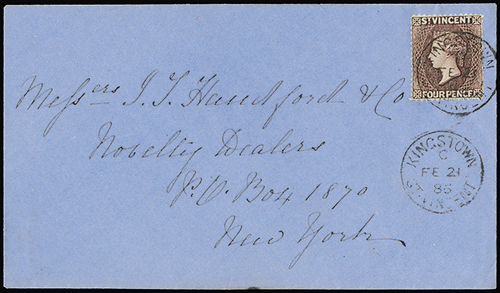 ST VINCENT
FOUR PENCE
KINGSTOWN
Messers J. T. Handford & Co
Novelty Dealers
P.O. Box 1870
New York
KINGSTOWN
C
FE 21
86
ST. VINCENT